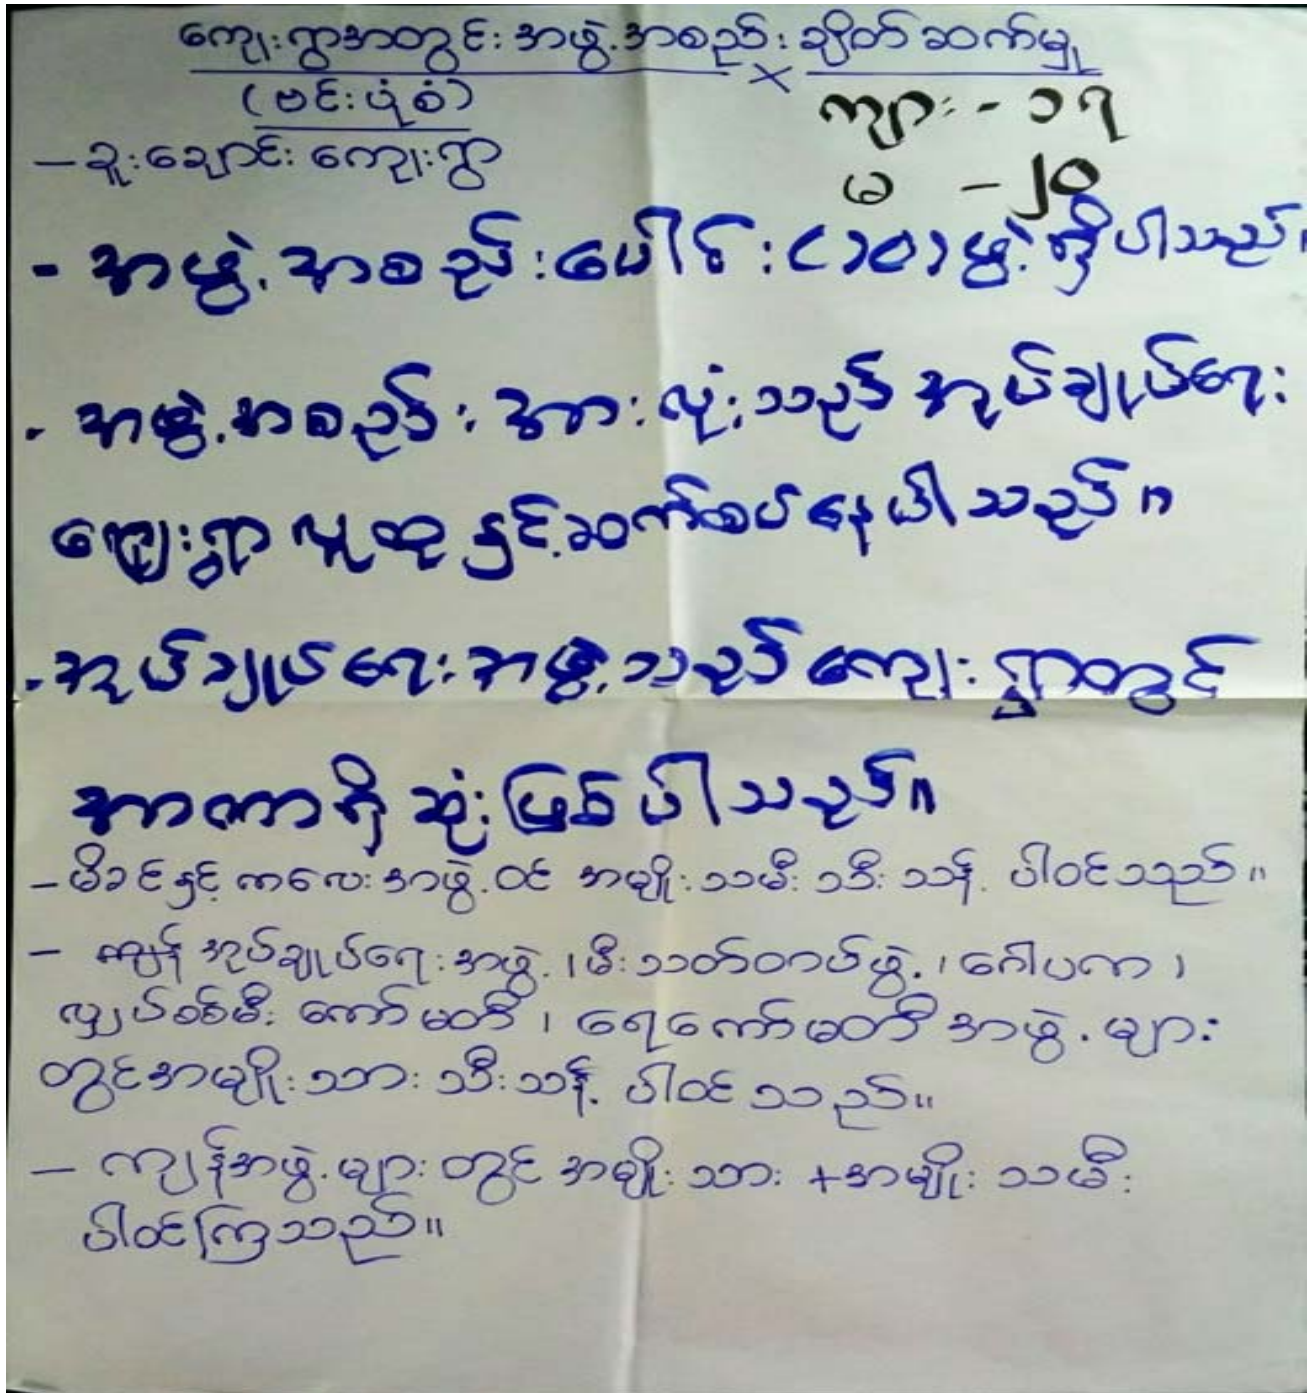 ကျေးရွာအတွင်း အဖွဲ့အစည်း ချိတ်ဆက်မှု
(ဗင်းပုံစံ)
ကျား - ၁၇
– ခူးချောင်း ကျေးရွာ
မ – ၂၀
- အဖွဲ့အစည်းပေါင်း (၁၀) ဖွဲ့ ရှိပါသည်။
- အဖွဲ့အစည်း အားလုံးသည် အုပ်ချုပ်ရေး
ကျေးရွာ လူထု နှင့်ဆက်စပ်နေပါသည်။
- အုပ်ချုပ်ရေးအဖွဲ့သည် ကျေးရွာတွင်
အာဏာရှိဆုံးဖြစ်ပါသည်။
– မိခင်နှင့် ကလေးအဖွဲ့ဝင် အမျိုးသမီးသီးသန့် ပါဝင်သည်။
– အုပ်ချုပ်ရေးအဖွဲ့၊ မီးသတ်တပ်ဖွဲ့၊ ဂေါပက၊
လျှပ်စစ်မီး ကော်မတီ၊ ရေကော်မတီ အဖွဲ့များ
တွင်အမျိုးသားသီးသန့် ပါဝင်သည်။
– ကျန်အဖွဲ့များတွင် အမျိုးသား + အမျိုးသမီး
ပါဝင်ကြသည်။